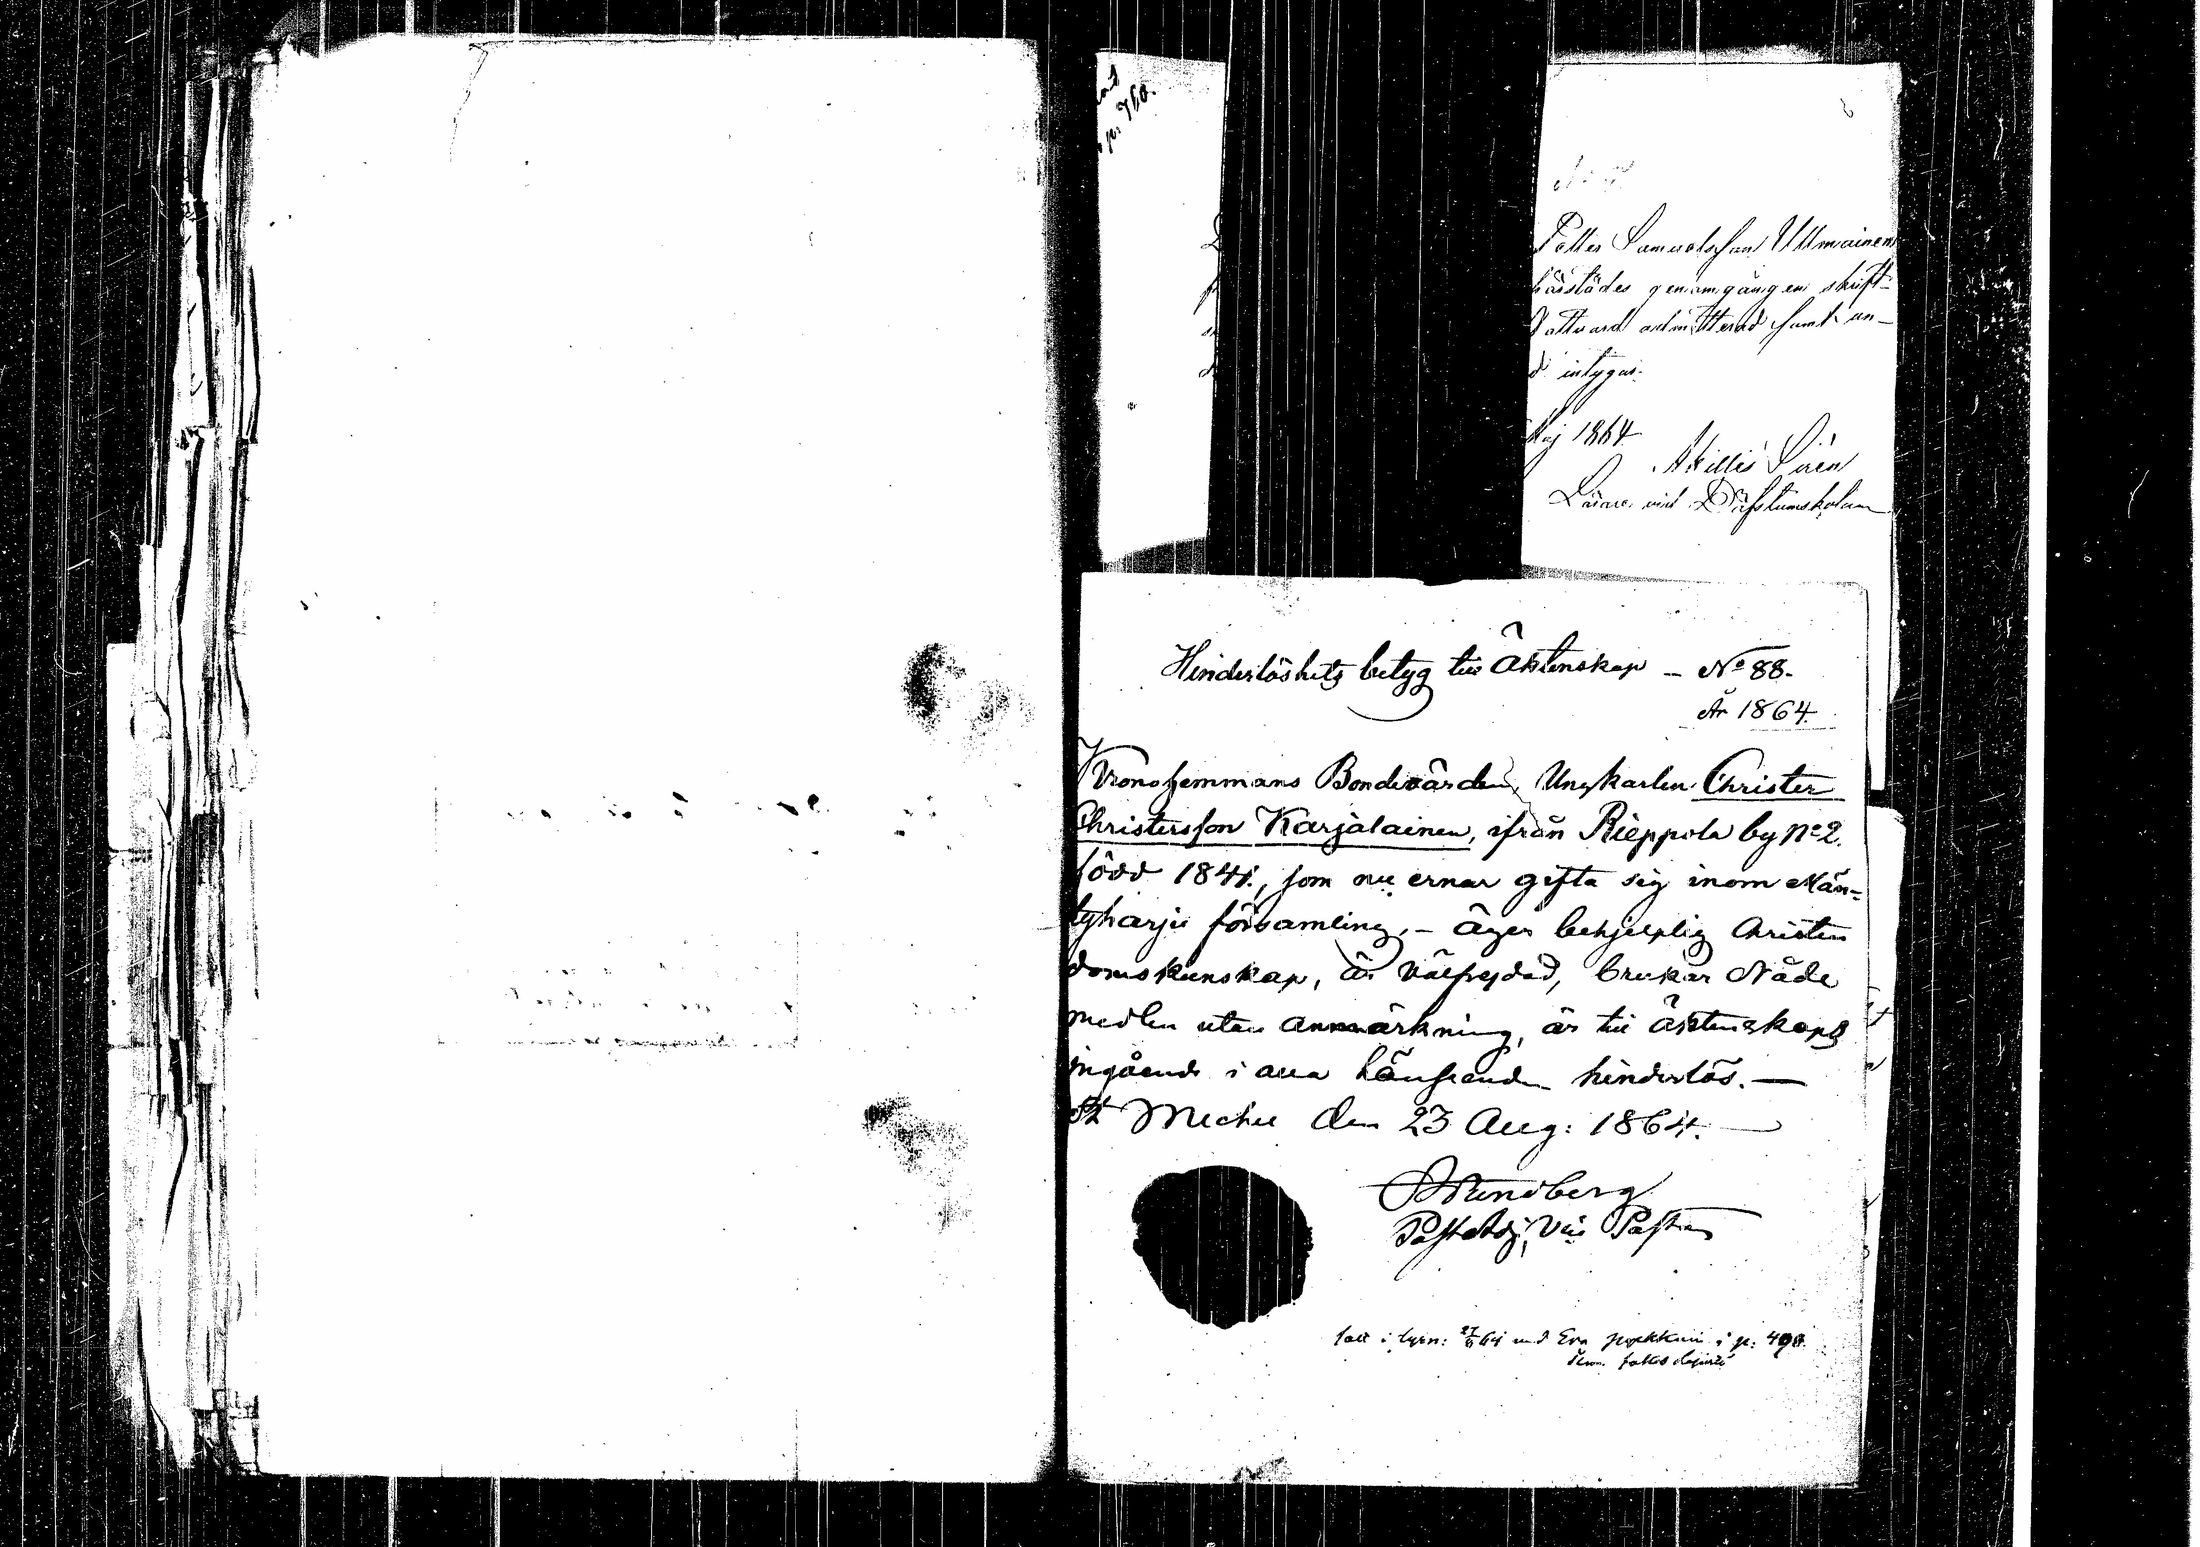 p. 760.
Petter Samuelsson Ullmainen
härstädes genomgången skrift-
Nattvard admitterad samt än-
d intygas.
Maj 1864
Akilles Sirén
Lärare vid Döfstumskolan
Hinderlöshets betyg till Äktenskap – No 88.
År 1864.
Kronohemmans Bondevärden, Ungkarlen Christer
Christersson Karjalainen, ifrån Rieppola by No 2.
född 1841, som nu ernar gifta sig inom Män-
tyharju församling, – äger behjelplig Christen
domskunskap, är välfrejdad, brukar Nåde
medlen utan anmärkning, är till Äktenskaps
ingående i alla hänseenden hinderlös. —
St Michel den 23 Aug: 1864. —
Strandberg
Past Adj, Vice Pastor
lyst i kyrk: 64 med Eva i p: 498